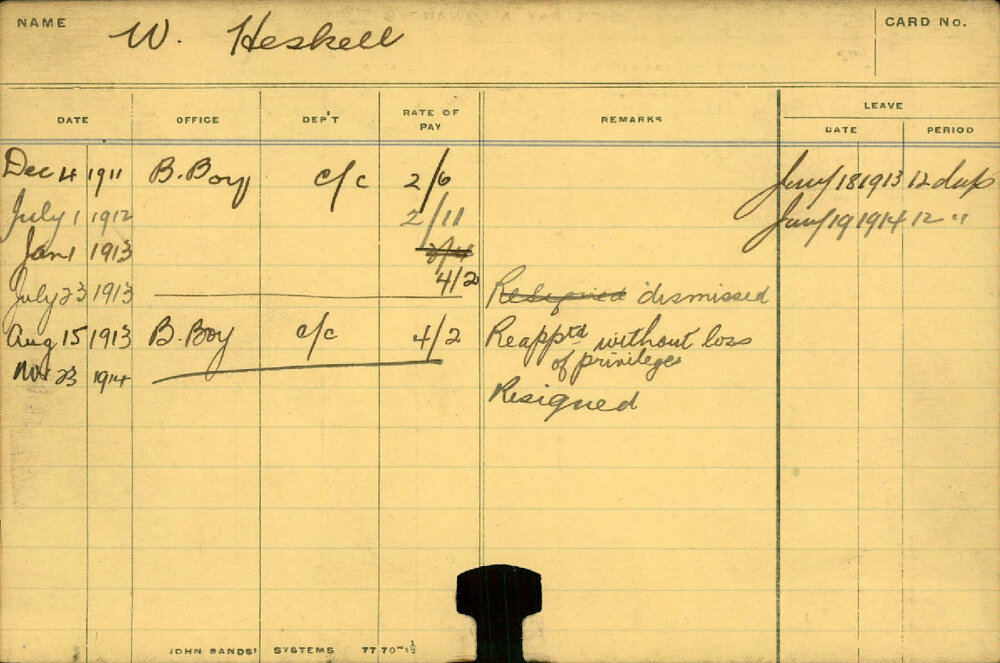 NAME W. Heskell CARD No.
LEAVE
DATE OFFICE DEP'T RATE OF PAY REMARKS DATE PERIOD
Dec 4 1911 B. Boy c/c 2/6 Jany 18 1913 12 days
July 1 1912 2/11 Jany 19 1914 12 "
Jan 1 1913
4/2
July 23 1913 Resigned dismissed
Aug 15 1913 B. Boy c/c 4/2 Reapptd without loss
of privileges
Nov 23 1914 Resigned
JOHN SANDS' SYSTEMS 7770